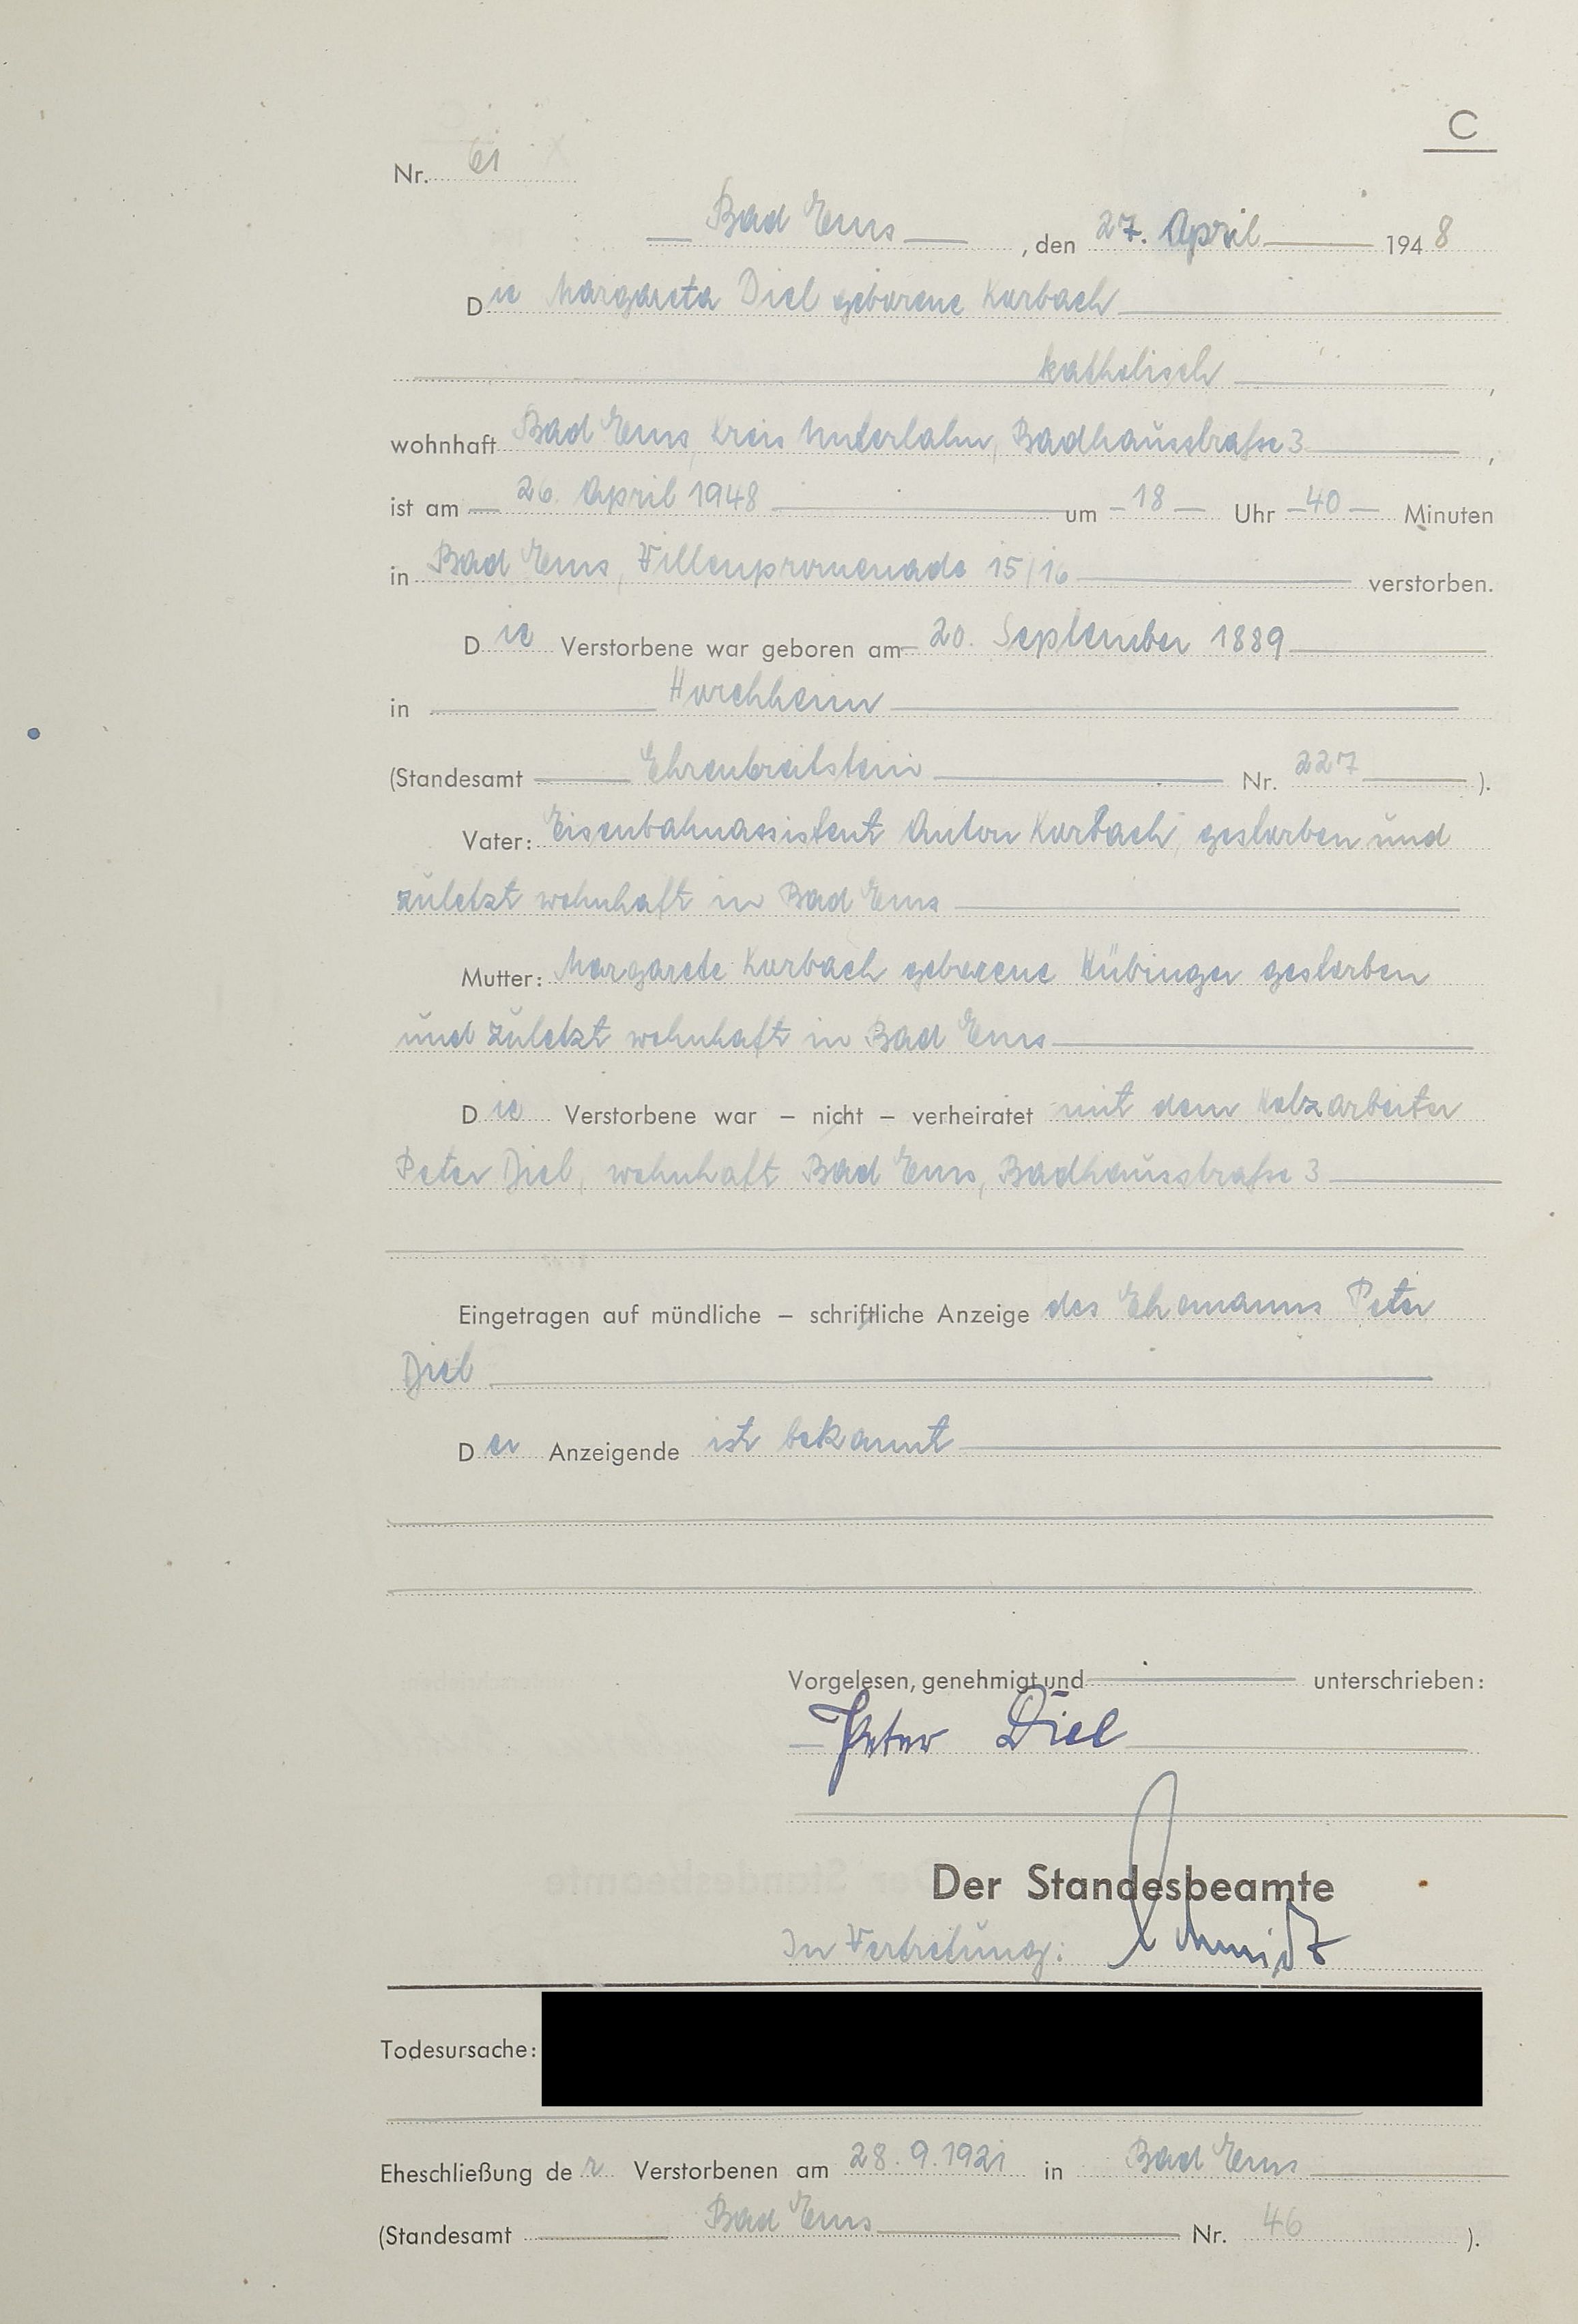 C
Nr. 61
Bad Ems, den 27. April 1948
Die Margareta Diel geborene Korbach
katholisch,
wohnhaft Bad Ems, Kreis Unterlahn, Badhausstraße 3,
ist am 26. April 1948 um 18 Uhr 40 Minuten
in Bad Ems, Villenpromenade 15/16 verstorben.
Die Verstorbene war geboren am 20. September 1889
in Horchheim
(Standesamt Ehrenbreitstein Nr. 227).
Vater: Eisenbahnassistent Anton Korbach, gestorben und
zuletzt wohnhaft in Bad Ems
Mutter: Margarete Korbach geborene Hübinger gestorben
und zuletzt wohnhaft in Bad Ems
Die Verstorbene war – nicht – verheiratet mit dem Holzarbeiter
Peter Diel, wohnhaft Bad Ems, Badhausstraße 3
Eingetragen auf mündliche – schriftliche Anzeige des Ehemanns Peter
Diel
Der Anzeigende ist bekannt
Vorgelesen, genehmigt und unterschrieben:
Peter Diel
Der Standesbeamte
In Vertretung: Schmidt
Todesursache:
Eheschließung der Verstorbenen am 28.9.1921 in Bad Ems
(Standesamt Bad Ems Nr. 46).